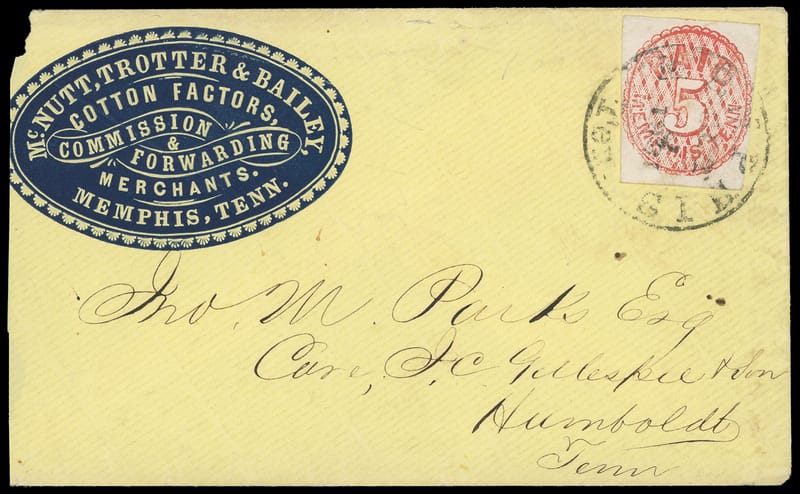 McNUTT, TROTTER & BAILEY,
COTTON FACTORS,
COMMISSION
&
FORWARDING
MERCHANTS.
MEMPHIS, TENN.
PAID
5
MEMPHIS, TENN.
Jno. M. Parks Esq
Care, J. C. Gillespie & Son
Humboldt
Tenn